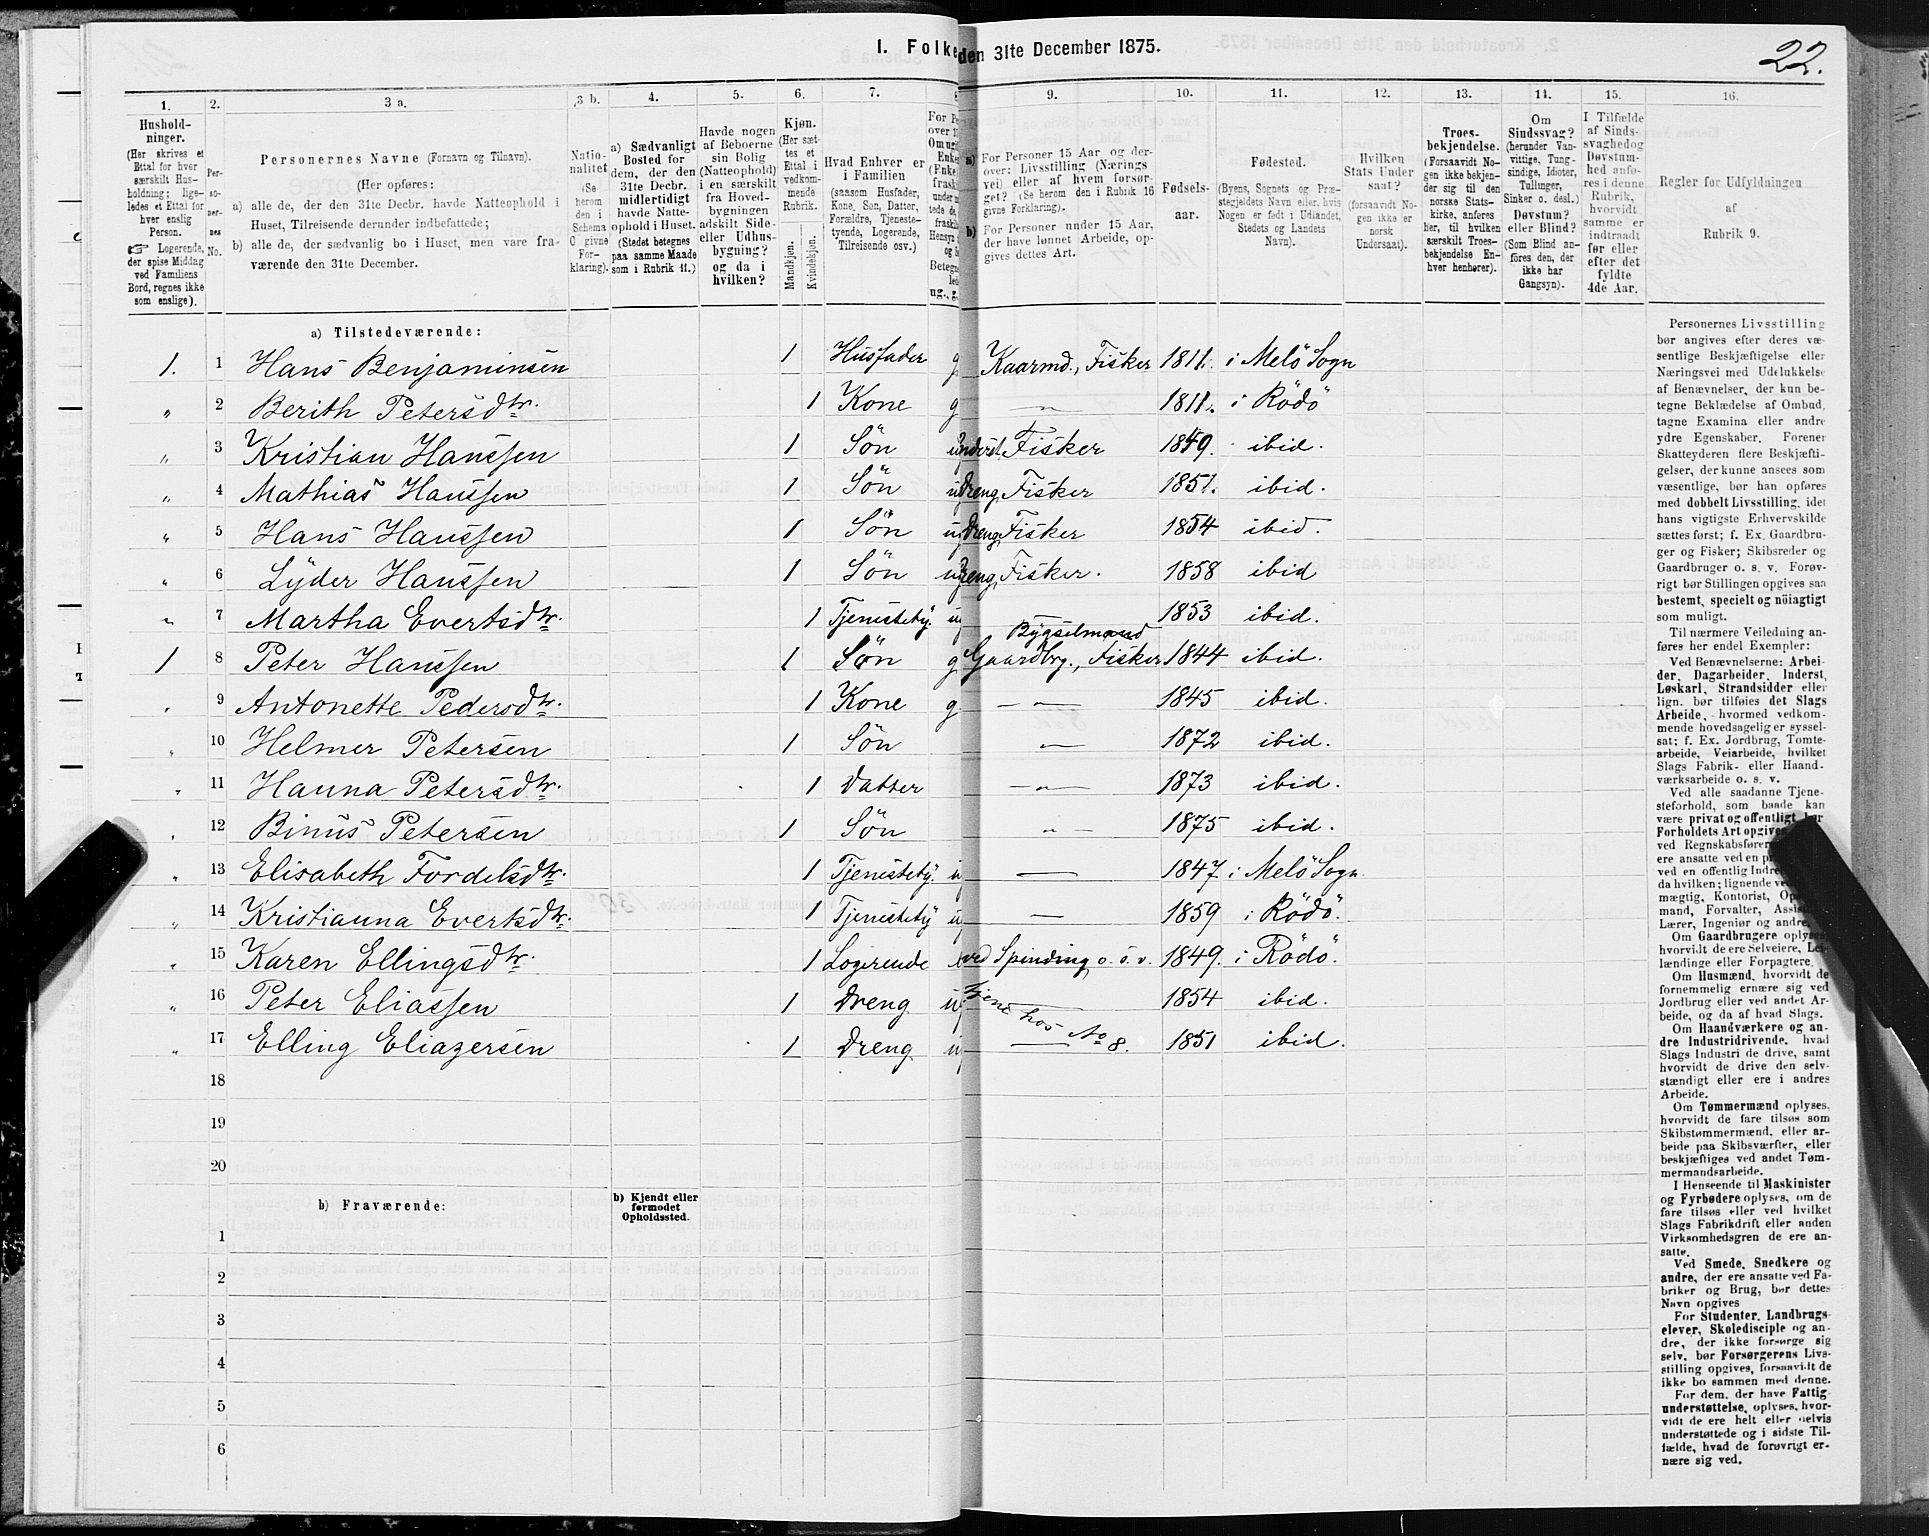 I. Folke den 31te December 1875.
22.
1. 2. 3 a. 3 b. 4. 5. 6. 7. 8 9. 10. 11. 12. 13. 14. 15. 16.
Hushold-
ninger.
(Her skrives et
Ettal for hver
særskilt Hus-
holdning; lige-
ledes et Ettal for
hver enslig
Person.
☞ Logerende,
der spise Middag
ved Familiens
Bord, regnes ikke
som enslige).
Per-
so-
ner-
nes
No.
Personernes Navne (Fornavn og Tilnavn).
(Her opføres:
a) alle de, der den 31te Decbr. havde Natteophold i
Huset, Tilreisende derunder indbefattede;
b) alle de, der sædvanlig bo i Huset, men vare fra-
værende den 31te December.
Natio-
nalitet
(Se
herom
den i
Schema
C givne
For-
klaring).
a) Sædvanligt
Bosted for
dem, der den
31te Decbr.
midlertidigt
havde Natte-
ophold i Huset.
(Stedet betegnes
paa samme Maade
som i Rubrik 11.)
Havde nogen
af Beboerne
sin Bolig
(Natteophold)
i en særskilt
fra Hoved-
bygningen
adskilt Side-
eller Udhus-
bygning?
og da i
hvilken?
Kjøn.
(Her sæt-
tes et
Ettal i
vedkom-
mende
Rubrik.
Mandkjøn.
Kvindekjøn.
Hvad Enhver er
i Familien
(saasom Husfader,
Kone, Søn, Datter,
Forældre, Tjeneste-
tyende, Logerende,
Tilreisende osv.)
a) For Personer 15 Aar og der-
over: Livsstilling (Nærings
vei) eller af hvem forsør-
get? (Se herom den i Rubrik 16
givne Forklaring).
b) For Personer under 15 Aar,
der have lønnet Arbeide, op-
gives dettes Art.
Fødsels-
aar.
Fødested.
(Byens, Sognets og Præ-
stegjeldets Navn eller, hvis
Nogen er født i Udlandet,
Stedets og Landets
Navn).
Hvilken
Stats Under
saat?
(forsaavidt No-
gen ikke er
norsk
Undersaat).
Troes-
bekjendelse.
(Forsaavidt No-
gen ikke bekjen-
der sig til den
norske Stats-
kirke, anføres
her, til hvilken
særskilt Troes-
bekjendelse En-
hver henhører).
Om
Sindssvag?
(herunder Van-
vittige, Tung-
sindige, Idioter,
Tullinger,
Sinker o. desl.)
Døvstum?
eller Blind?
(Som Blind an-
føres den, der
ikke har
Gangsyn).
I Tilfælde
af Sinds-
svaghed og
Døvstum-
hed anfø-
res i denne
Rubrik,
hvorvidt
samme er
indtraadt
før eller
efter det
fyldte
4de Aar.
Regler for Udfyldningen
af
Rubrik 9.
a) Tilstedeværende:
1. 1 Hans Benjaminsen 1 Husfader g Kaarmd., Fisker 1811. i Melö Sogn
„ 2 Berith Petersdtr. 1 Kone g —„— 1811. i Rödö
„ 3 Kristian Hanssen 1 Sön Inderst, Fisker 1849. ibid.
„ 4 Mathias Hanssen 1 Sön Dreng, Fisker 1851. ibid.
„ 5 Hans Hanssen 1 Sön Dreng, Fisker 1854 ibid.
„ 6 Lyder Hanssen 1 Sön Dreng, Fisker. 1858 ibid
„ 7 Martha Evertsdtr. 1 Tjenestety. 1853 ibid.
Bygselmand
1 8 Peter Hanssen 1 Sön g Gaardbrg., Fisker 1844 ibid.
„ 9 Antonette Pedersdtr. 1 Kone g —„— 1845 ibid.
„ 10 Helmer Petersen 1 Sön —„— 1872 ibid.
„ 11 Hanna Petersdtr. 1 Datter —„— 1873 ibid.
„ 12 Binus Petersen 1 Sön —„— 1875 ibid.
„ 13 Elisabeth Fordelsdtr. 1 Tjenestety. — 1847 i Melö Sogn
„ 14 Kristianna Evertsdtr. 1 Tjenestety — 1859 i Rödö.
„ 15 Karen Ellingsdtr. 1 Logerende ved Spinding o. s. v. 1849. i Rödö.
„ 16 Peter Eliassen 1 Dreng — 1854 ibid.
tjene hos No 8.
„ 17 Elling Eliazersen 1 Dreng — 1851 ibid.
18
19
20
b) Fraværende:
b) Kjendt eller
formodet
Opholdssted.
1
2
3
4
5
6
Personernes Livsstilling
bør angives efter deres væ-
sentlige Beskjæftigelse eller
Næringsvei med Udelukkelse
af Benævnelser, der kun be-
tegne Beklædelse af Ombud,
tagne Examina eller andre
ydre Egenskaber. Forener
Skatteyderen flere Beskjæfti-
gelser, der kunne ansees som
væsentlige, bør han opføres
med dobbelt Livsstilling, idet
hans vigtigste Erhvervskilde
sættes først; f. Ex. Gaardbru-
ger og Fisker; Skibsreder og
Gaardbruger o. s. v. Forøv-
rigt bør Stillingen opgives saa
bestemt, specielt og nöiagtigt
som muligt.
Til nærmere Veiledning an-
føres her endel Exempler:
Ved Benævnelserne: Arbei-
der, Dagarbeider, Inderst,
Løskarl, Strandsidder eller
lign. bør tilføies det Slags
Arbeide, hvormed vedkom-
mende hovedsagelig er syssel-
sat; f. Ex. Jordbrug, Tomte-
arbeide, Veiarbeide, hvilket
Slags Fabrik- eller Haand-
værksarbeide o. s. v.
Ved alle saadanne Tjene-
steforhold, som baade kan
være privat og offentligt, bør
Forholdets Art opgives
ved Regnskabsførere
ere ansatte ved en
ved en offentlig
da hvilken; lignende
mægtig, Kontorist,
mand, Forvalter,
Lærer, Ingeniør og andre.
Om Gaardbrugere oplyses
hvorvidt de ere Selveiere, Lei-
lændinge eller Forpagtere.
Om Husmænd, hvorvidt de
fornemmelig ernære sig ved
Jordbrug eller ved andet Ar-
beide, og da af hvad Slags.
Om Haandværkere og an-
dre Industridrivende, hvad
Slags Industri de drive, samt
hvorvidt de drive den selv-
stændigt eller ere i andres
Arbeide.
Om Tømmermænd oplyses,
hvorvidt de fare tilsøs som
Skibstømmermænd, eller ar-
beide paa Skibsværfter, eller
beskjæftiges ved andet Tøm-
mermandsarbeide.
I Henseende til Maskinister
og Fyrbødere oplyses, om de
fare tilsøs eller ved hvilket
Slags Fabrikdrift eller anden
Virksomhedsgren de ere an-
satte.
Ved Smede, Snedkere og
andre, der ere ansatte ved Fa-
briker og Brug, bør dettes
Navn opgives
For Studenter, Landbrugs-
elever, Skoledisciple og an-
dre, der ikke forsørge sig
selv, bør Forsørgerens Livs-
stilling opgives, forsaavidt de
ikke bo sammen med denne.
For dem, der have Fattig-
understøttelse, oplyses, hvor-
vidt de ere helt eller delvis
understøttede og i sidste Til-
fælde, hvad de forøvrigt er-
nære sig ved.